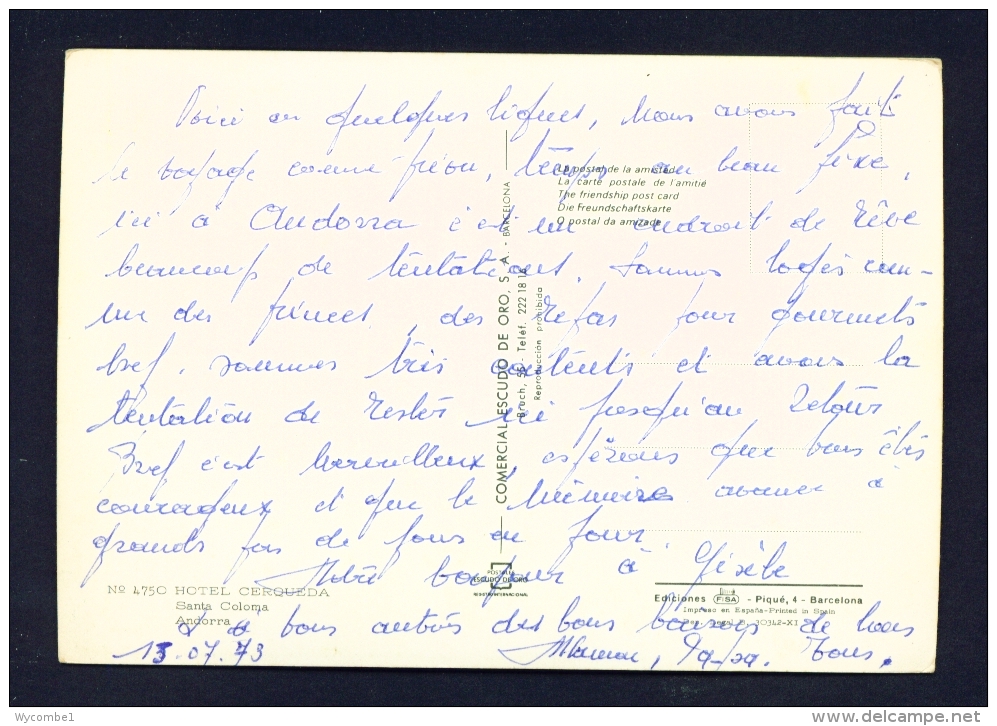 Voici en quelques lignes, Nous avons fait
le voyage comme prévu, temps au beau fixe,
ici à Andorra c'est un endroit de rêve
beaucoup de tentations. Sommes logés com-
me des princes, des repas pour gourmets
bref, sommes très contents et avons la
tentation de rester ici jusqu'au retour
Bref c'est merveilleux, espérons que vous êtes
courageux et que le mémoire avance à
grands pas de jours en jour.
Notre bonjour à Gisèle
à vous autres des bons baisers de nous
13.07.73 Maman, Papa. Tous.
La postal de la amistad
La carte postale de l'amitié
The friendship post card
Die Freundschaftskarte
O postal da amizade
COMERCIAL ESCUDO DE ORO, S. A. - BARCELONA
Bruch, 56 - Teléf. 222 18 16
Reproducción prohibida
POSTALES
ESCUDO DE ORO
REGISTRO INTERNACIONAL
Nº 4750 HOTEL CERQUEDA
Santa Coloma
Andorra
Ediciones FISA - Piqué, 4 - Barcelona
Impreso en España-Printed in Spain
Dep. Legal B. 30342-XI
Wycombe1
www.delcampe.net